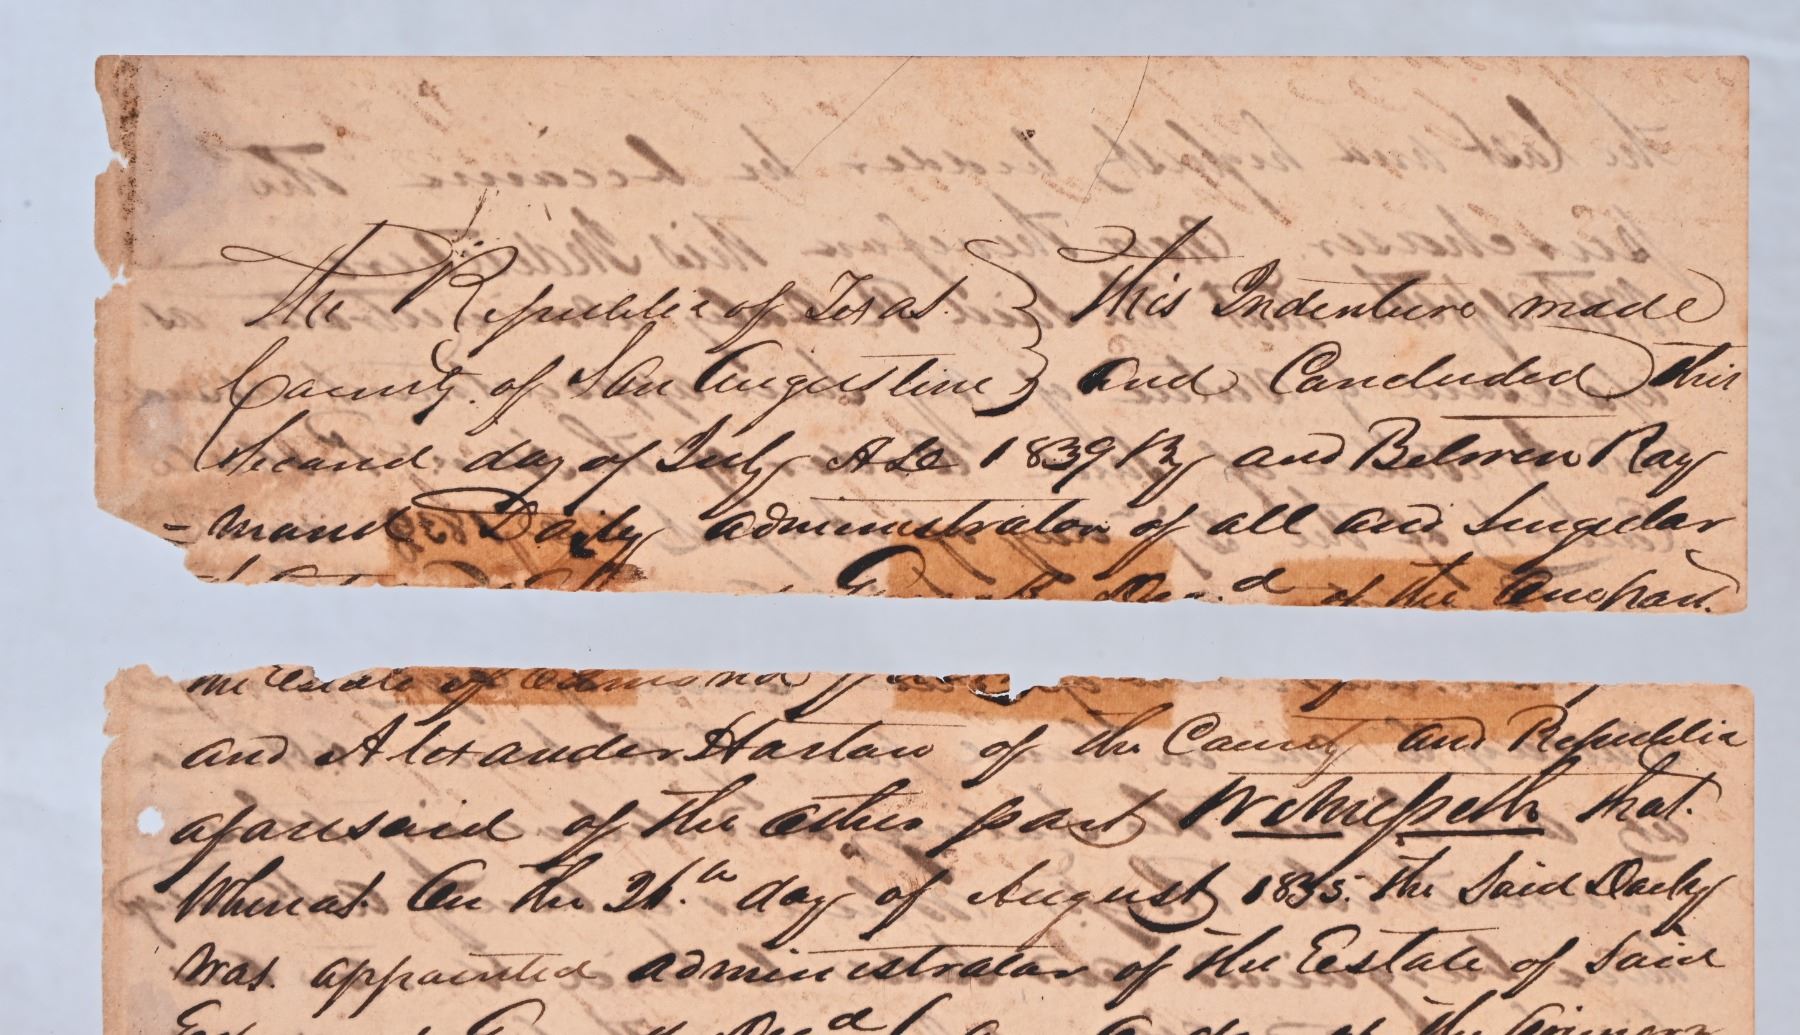 The Republic of Texas } This Indenture made
County of San Augustine } and Concluded this
Second day of July AD 1839 By and Between Ray
=mand Daily administrator of all and Singular
Decd of the one part
the Estate of Edmond
and Alexander Harlaw of the County and Republic
aforesaid of the other part Witnesseth that.
Whereas On the 26.th day of August 1835. the Said Daily
was. appointed administrator of the Estate of Said
Decd of the